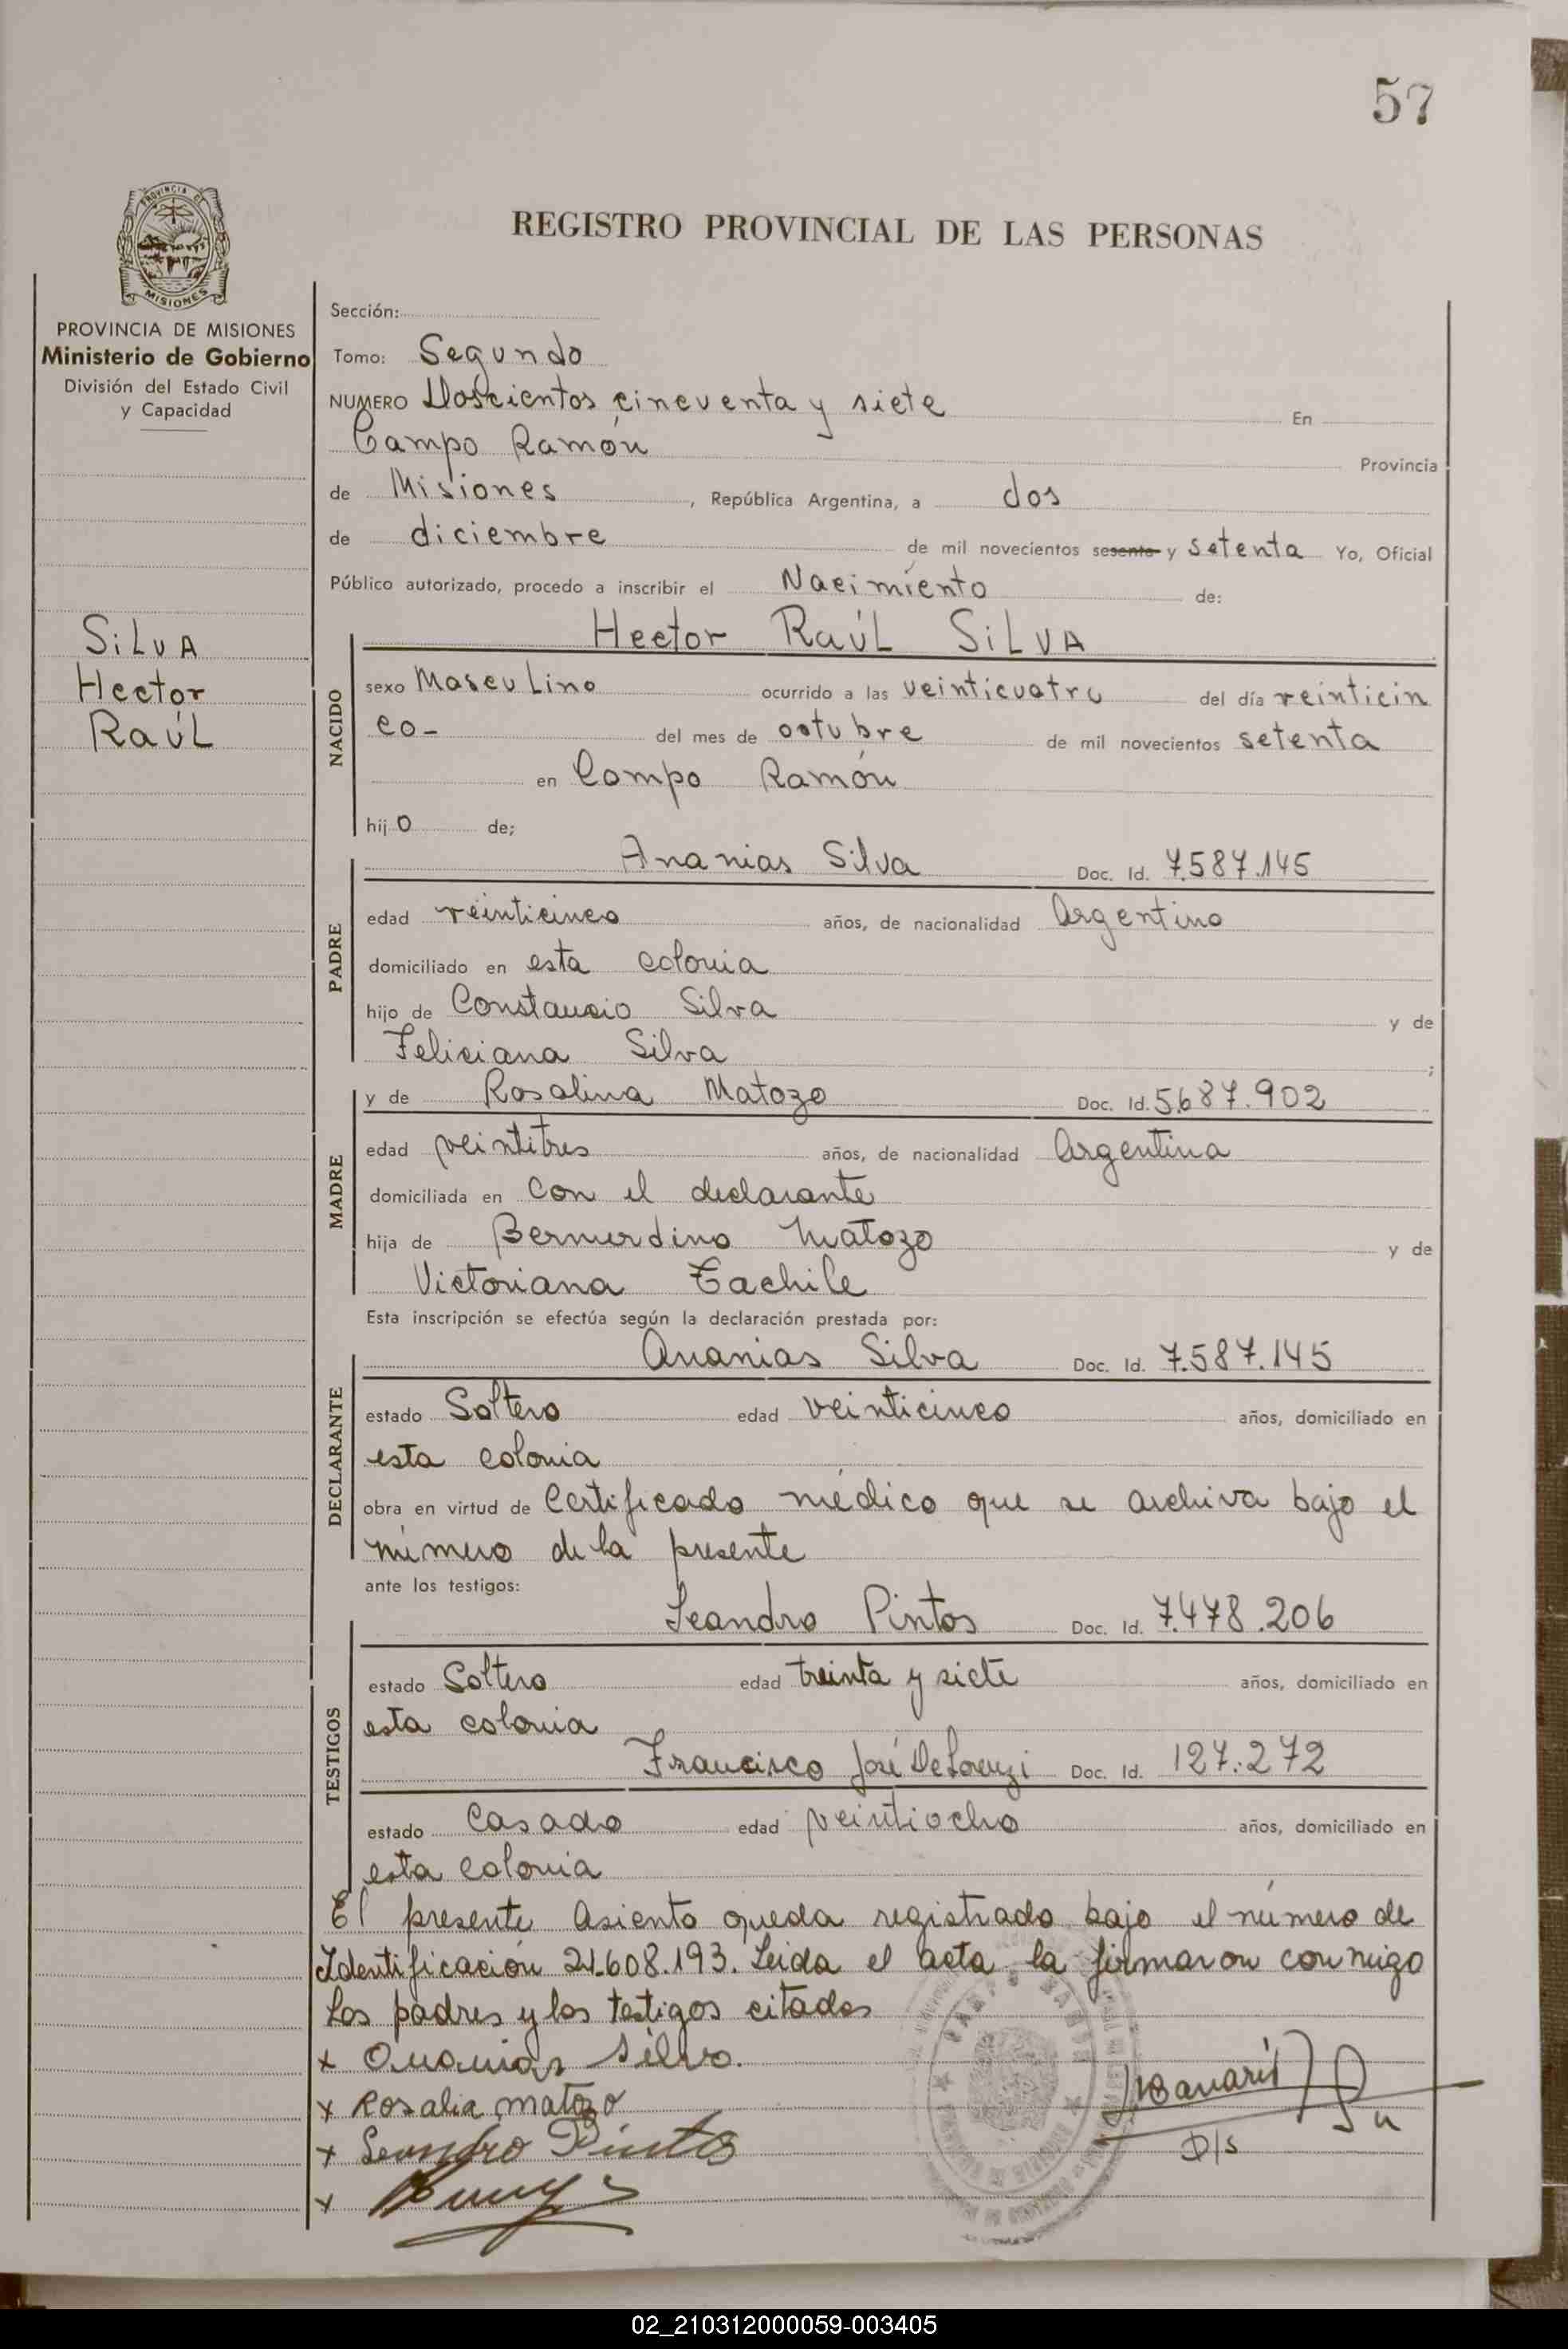 57
PROVINCIA DE
MISIONES
REGISTRO PROVINCIAL DE LAS PERSONAS
PROVINCIA DE MISIONES
Ministerio de Gobierno
División del Estado Civil
y Capacidad
SiLVA
Hector
RaúL
Sección:
Tomo: Segundo
NUMERO Doscientos cincuenta y siete En
Campo Ramón Provincia
de Misiones, República Argentina, a dos
de diciembre de mil novecientos sesenta y setenta Yo, Oficial
Público autorizado, procedo a inscribir el Nacimiento de:
Hector RaúL SiLVA
NACIDO
sexo Masculino ocurrido a las veinticuatro del día veinticin
co- del mes de octubre de mil novecientos setenta
en Campo Ramón
hijo de;
PADRE
Ananias Silva Doc. Id. 7.587.145
edad veinticinco años, de nacionalidad Argentino
domiciliado en esta colonia
hijo de Constancio Silva y de
Feliciana Silva ;
MADRE
y de Rosalina Matozo Doc. Id. 5.687.902
edad veintitres años, de nacionalidad Argentina
domiciliada en con el declarante
hija de Bernardino Matozo y de
Victoriana Tachile
Esta inscripción se efectúa según la declaración prestada por:
DECLARANTE
Ananias Silva Doc. Id. 7.587.145
estado Soltero edad veinticinco años, domiciliado en
esta colonia
obra en virtud de Certificado médico que se archiva bajo el
número de la presente
ante los testigos:
TESTIGOS
Leandro Pintos Doc. Id. 7.478.206
estado Soltero edad treinta y siete años, domiciliado en
esta colonia
Francisco José De Lorenzi Doc. Id. 127.272
estado Casado edad veintiocho años, domiciliado en
esta colonia
El presente asiento queda registrado bajo el número de
Identificación 21.608.193. Leida el acta la firmaron conmigo
los padres y los testigos citados
x Ananias Silva.
x Rosalia matozo
x Leandro Pintos
x
D/S
02_210312000059-003405